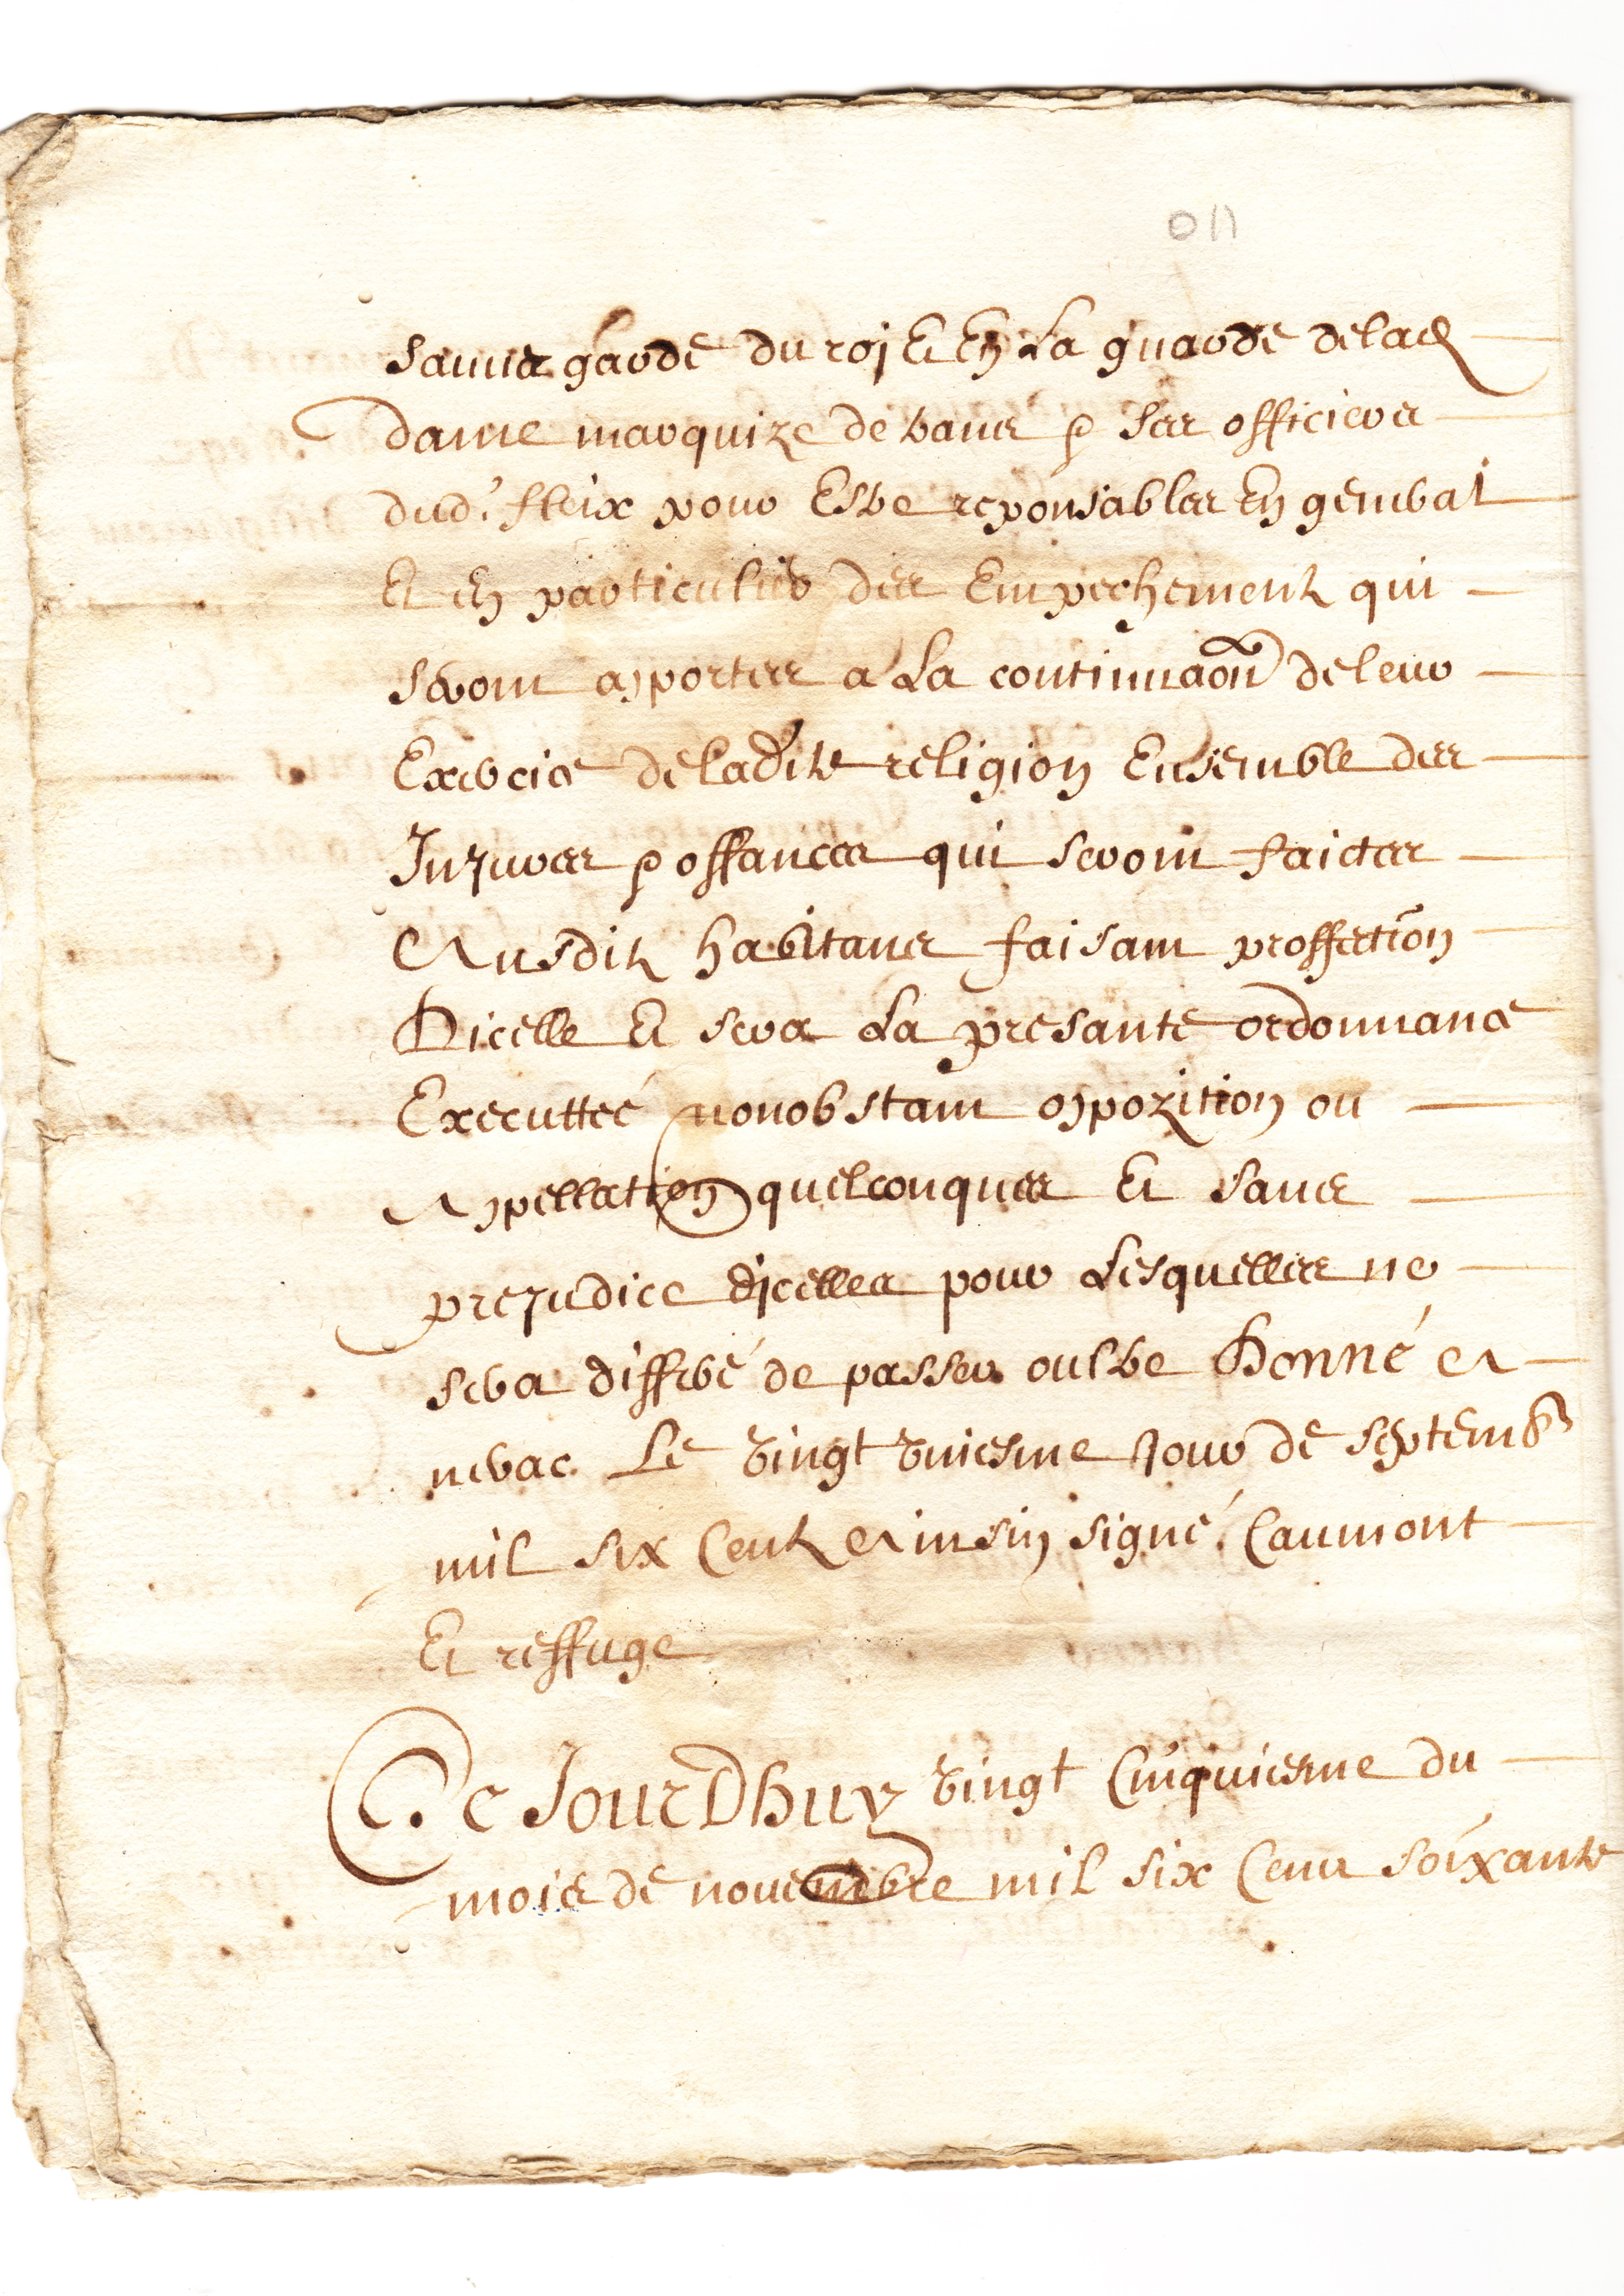 011
sauve garde du roj Et En La guarde delad
dame marquize de trans & ses officiers
dud. fleix pour Estre reponsables En general
Et En particulier des Empechements qui
seront apportes a La continuaon de leur
Exercice deladite religion Ensemble des
Injures & offances qui seront faictes
Ausdits habitans faisant proffection
Dicelle Et sera La presante ordonnance
Executteé nonobstant oppozition ou
Appellation quelconques Et sans
prejudice djcelles pour Lesquelles ne
sera differé de passer oultre Donné a
nerac. Le vingt uniesme Jour de septemb
mil six Cents Ainsin signé. Caumont
Et reffuge
Ce JourDhuy vingt Cinquiesme du
mois de novembre mil six Cens soixante